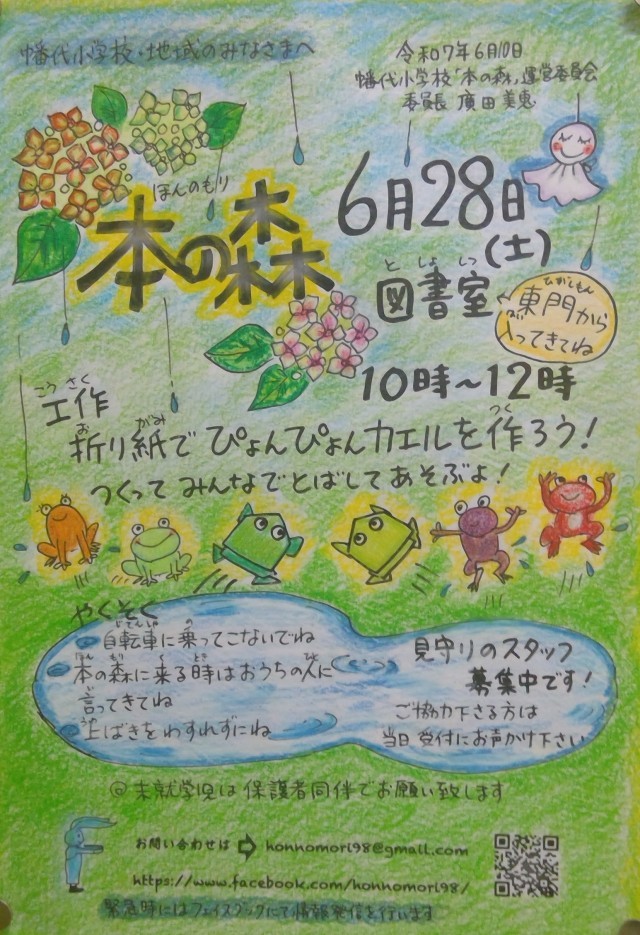 幡代小学校・地域のみなさまへ
令和7年6月10日
幡代小学校「本の森」運営委員会
委員長 廣田 美恵
ほんのもり
本の森
6月28日
(土)
としょしつ
図書室
ひがしもん
東門から
入ってきてね
10時～12時
こうさく
工作
お がみ つく
折り紙で ぴょんぴょんカエルを作ろう!
つくって みんなでとばしてあそぶよ!
やくそく
じてんしゃ の
自転車に乗ってこないでね
ほん もり く とき ひと
本の森に来る時はおうちの人に
い
言ってきてね
うわ
上ばきをわすれずにね
見守りのスタッフ
募集中です!
ご協力下さる方は
当日 受付にお声かけ下さい
@未就学児は保護者同伴でお願い致します
お問い合わせは honnomori98@gmail.com
https://www.facebook.com/honnomori98/
緊急時にはフェイスブックにて情報発信を行います